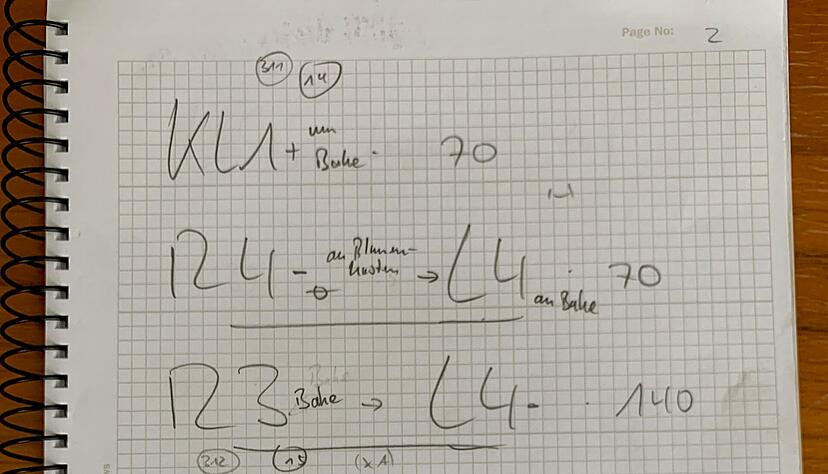 Page No: 2
311 14
KU + um Bake 70
R4 - an Blumen-
kasten → L4 an Bake 70
R3 Bake → L4 - 140
312 15 (x1)